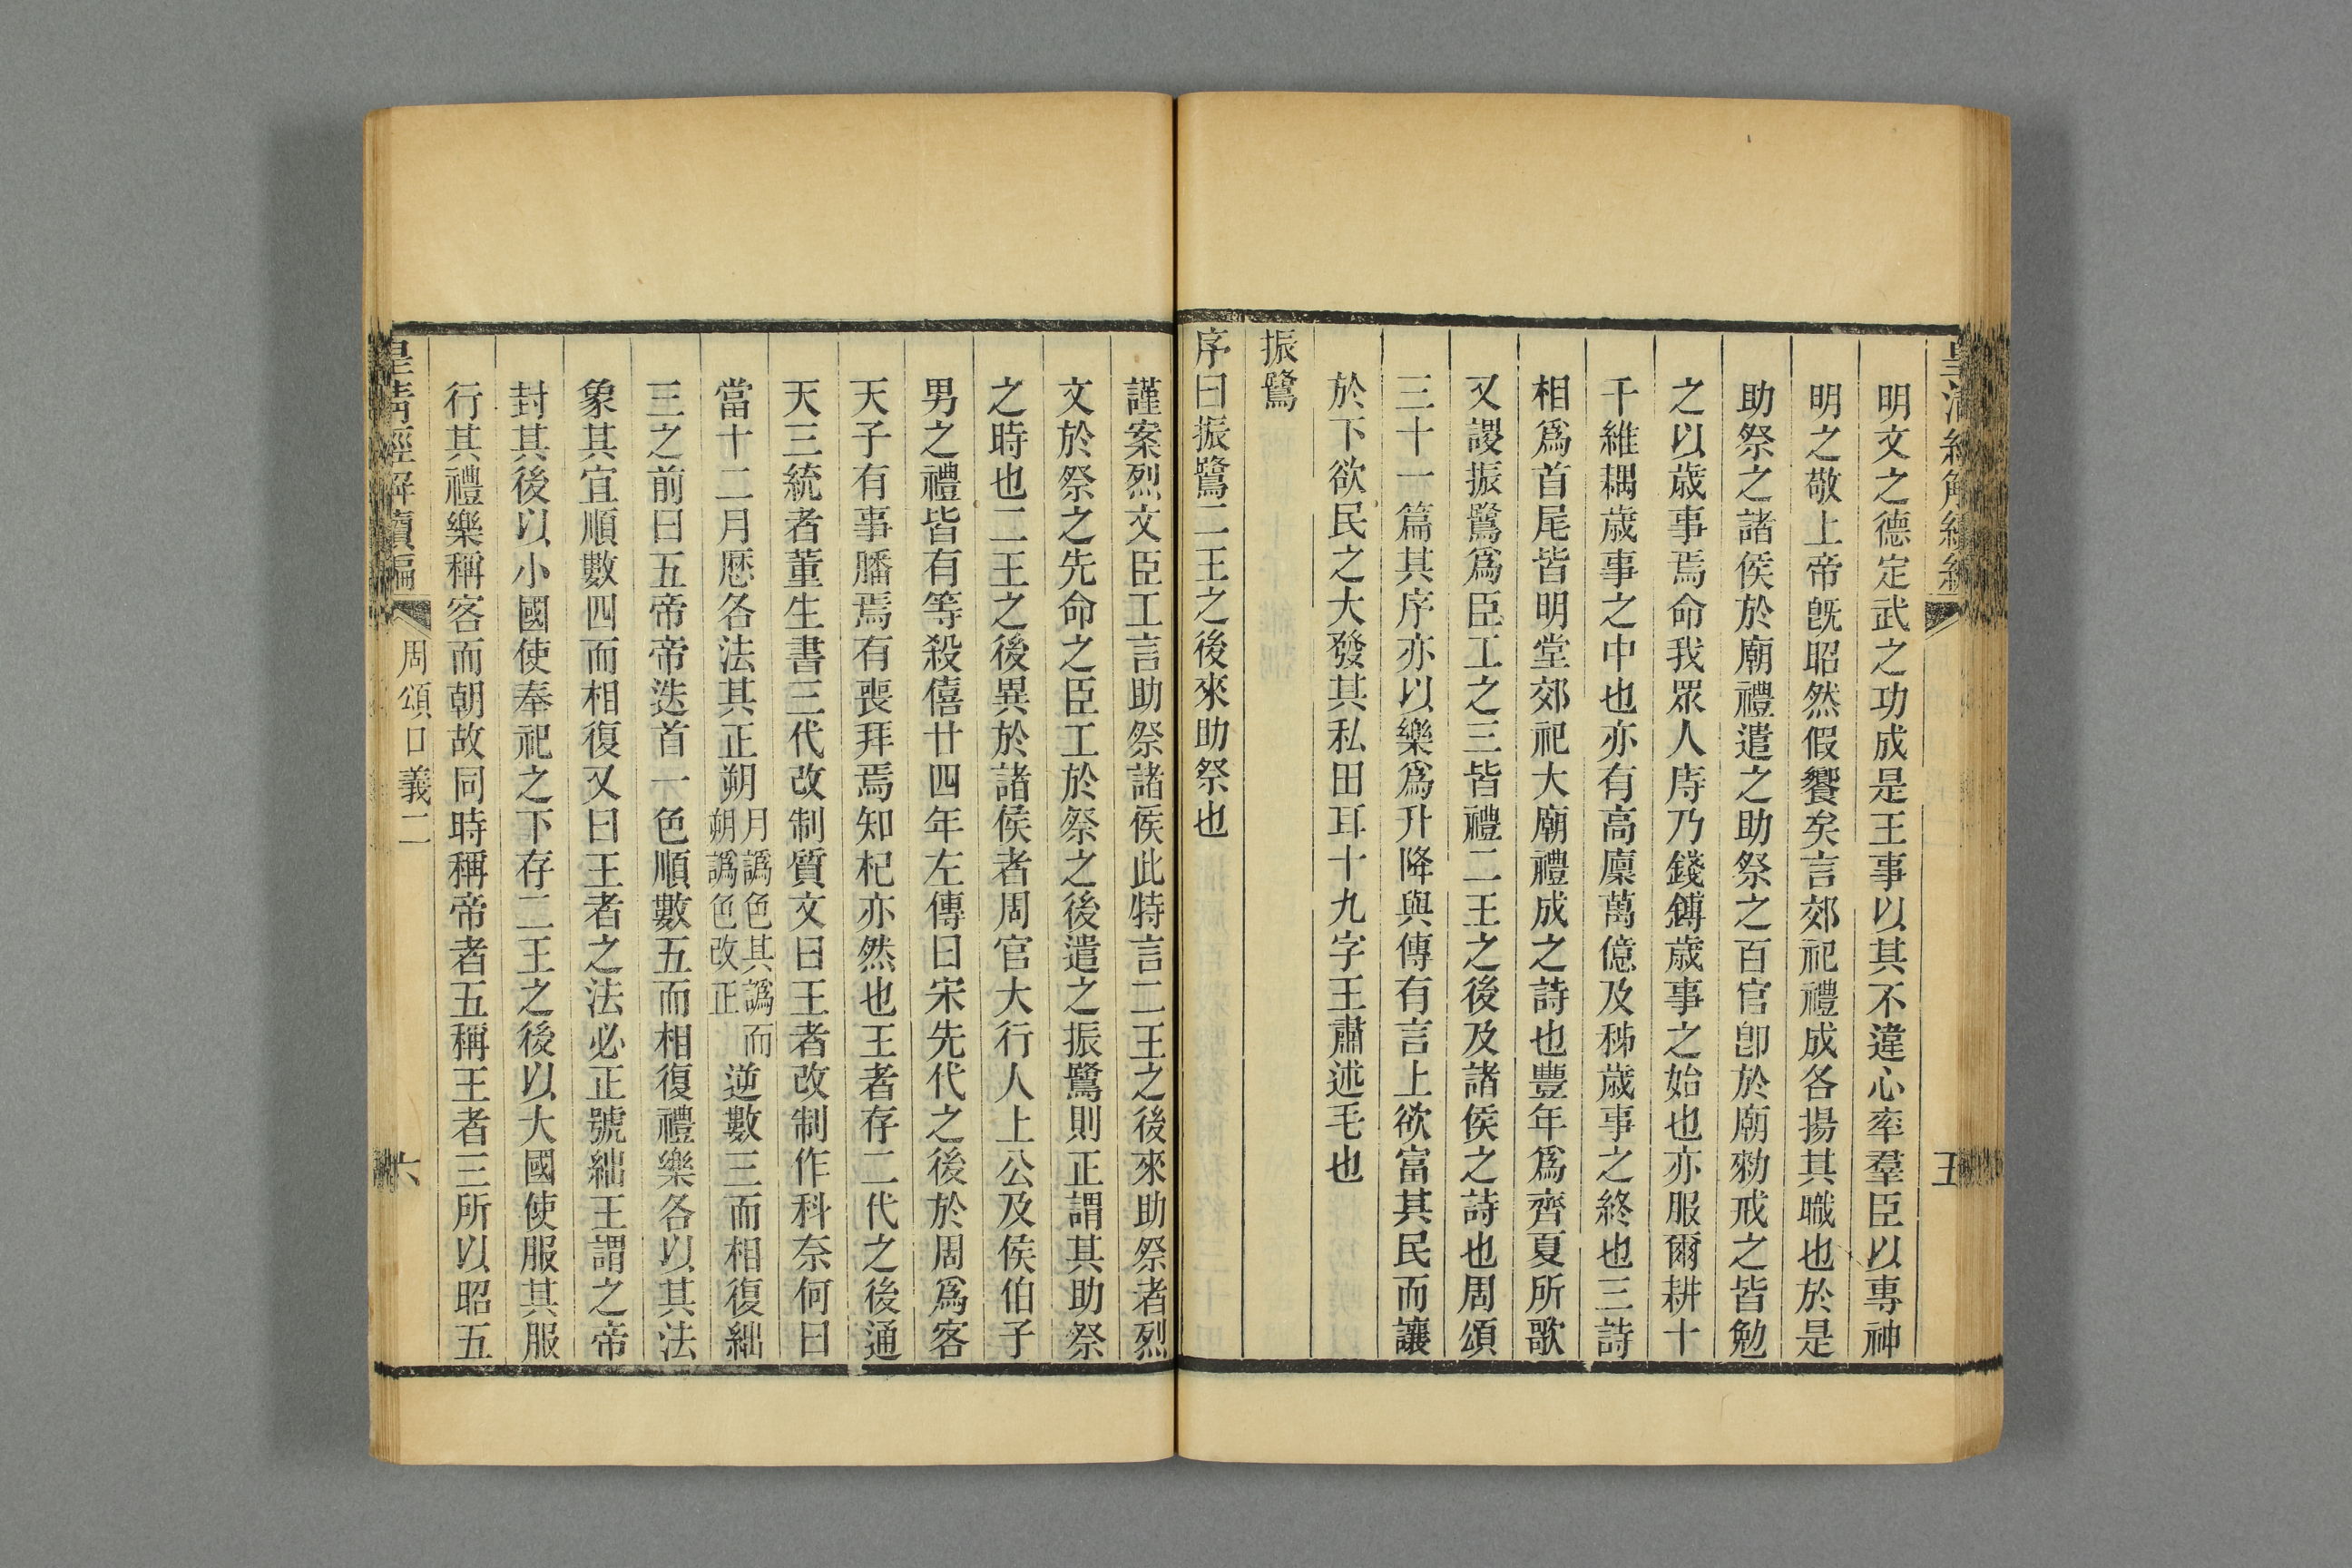 明文之德定武之功成是王事以其不違心率羣臣以專神
明之敬上帝旣昭然假饗矣言郊祀禮成各揚其職也於是
助祭之諸侯於廟禮遣之助祭之百官卽於廟勑戒之皆勉
之以歲事焉命我眾人庤乃錢鎛歲事之始也亦服爾耕十
千維耦歲事之中也亦有高廩萬億及秭歲事之終也三詩
相爲首尾皆明堂郊祀大廟禮成之詩也豐年爲齊夏所歌
又謖振鷺爲臣工之三皆禮二王之後及諸侯之詩也周頌
三十一篇其序亦以樂爲升降與傳有言上欲富其民而讓
於下欲民之大發其私田耳十九字王肅述毛也
振鷺
序曰振鷺二王之後來助祭也
謹案烈文臣工言助祭諸侯此特言二王之後來助祭者烈
文於祭之先命之臣工於祭之後遣之振鷺則正謂其助祭
之時也二王之後異於諸侯者周官大行人上公及侯伯子
男之禮皆有等殺僖廿四年左傳曰宋先代之後於周爲客
天子有事膰焉有喪拜焉知杞亦然也王者存二代之後通
天三統者董生書三代改制質文曰王者改制作科奈何曰
當十二月歷各法其正朔月譌色其譌而朔譌色改正逆數三而相復絀
三之前曰五帝帝迭首一色順數五而相復禮樂各以其法
象其宜順數四而相復又曰王者之法必正號絀王謂之帝
封其後以小國使奉祀之下存二王之後以大國使服其服
行其禮樂稱客而朝故同時稱帝者五稱王者三所以昭五
皇清經解續編 周頌口義二 六